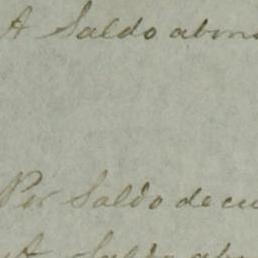 A Saldo abon
Per Saldo de cu
A Saldo abo